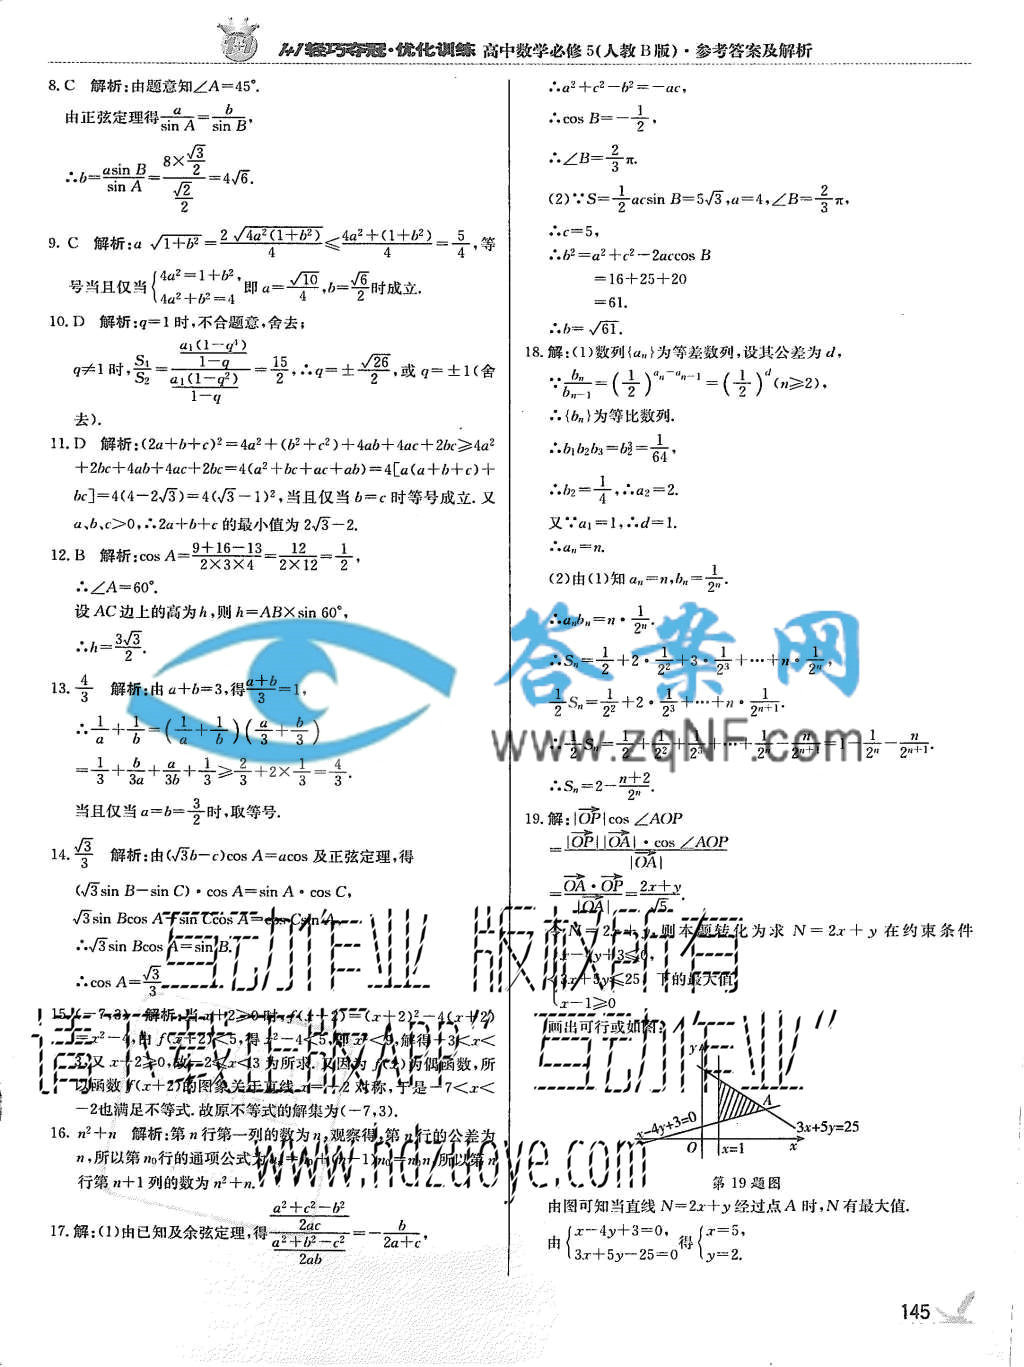 1+1轻巧夺冠·优化训练 高中数学必修5(人教B版)·参考答案及解析
8. C 解析:由题意知∠A=45°.
由正弦定理得a/sin A=b/sin B,
∴b=asin B/sin A=(8×√3/2)/(√2/2)=4√6.
9. C 解析:a√(1+b²)=2√(4a²(1+b²))/4≤(4a²+(1+b²))/4=5/4,等
号当且仅当{4a²=1+b², 4a²+b²=4 即a=√10/4,b=√6/2时成立.
10. D 解析:q=1时,不合题意,舍去;
q≠1时,S₄/S₂=(a₁(1-q⁴)/(1-q))/(a₁(1-q²)/(1-q))=15/2,∴q=±√26/2,或q=±1(舍
去).
11. D 解析:(2a+b+c)²=4a²+(b²+c²)+4ab+4ac+2bc≥4a²
+2bc+4ab+4ac+2bc=4(a²+bc+ac+ab)=4[a(a+b+c)+
bc]=4(4-2√3)=4(√3-1)²,当且仅当b=c时等号成立.又
a、b、c>0,∴2a+b+c的最小值为2√3-2.
12. B 解析:cos A=(9+16-13)/(2×3×4)=12/(2×12)=1/2,
∴∠A=60°.
设AC边上的高为h,则h=AB×sin 60°,
∴h=3√3/2.
13. 4/3 解析:由a+b=3,得(a+b)/3=1,
∴1/a+1/b=(1/a+1/b)(a/3+b/3)
=1/3+b/3a+a/3b+1/3≥2/3+2×1/3=4/3.
当且仅当a=b=3/2时,取等号.
14. √3/3 解析:由(√3b-c)cos A=acos 及正弦定理,得
(√3sin B-sin C)·cos A=sin A·cos C,
√3sin Bcos A-sin Ccos A=cos Csin A,
∴√3sin Bcos A=sin B.
∴cos A=√3/3
15. (-7,3) 解析:当x+2≥0时,f(x+2)=(x+2)²-4(x+2)
=x²-4,由f(x+2)<5,得x²-4<5,即x²<9,解得-3<x<
3,又x+2≥0,故-2≤x<3为所求.又因为f(x)为偶函数,所
以函数f(x+2)的图象关于直线x=-2对称,于是-7<x<
-2也满足不等式.故原不等式的解集为(-7,3).
16. n²+n 解析:第n行第一列的数为n,观察得,第n行的公差为
n,所以第n₀行的通项公式为 所以第n
行第n+1列的数为n²+n.
17. 解:(1)由已知及余弦定理,得((a²+c²-b²)/2ac)/((a²+b²-c²)/2ab)=-b/(2a+c),
∴a²+c²-b²=-ac,
∴cos B=-1/2,
∴∠B=2/3π.
(2)∵S=1/2acsin B=5√3,a=4,∠B=2/3π,
∴c=5,
∴b²=a²+c²-2accos B
=16+25+20
=61.
∴b=√61.
18. 解:(1)数列{aₙ}为等差数列,设其公差为d,
∵bₙ/bₙ₋₁=(1/2)^(aₙ-aₙ₋₁)=(1/2)^d(n≥2),
∴{bₙ}为等比数列.
∴b₁b₂b₃=b₂³=1/64,
∴b₂=1/4,∴a₂=2.
又∵a₁=1,∴d=1.
∴aₙ=n.
(2)由(1)知aₙ=n,bₙ=1/2ⁿ.
∴aₙbₙ=n·1/2ⁿ.
∴Sₙ=1/2+2·1/2²+3·1/2³+…+n·1/2ⁿ,
1/2Sₙ=1/2²+2·1/2³+…+n·1/2ⁿ⁺¹.
∴1/2Sₙ=1/2+1/2²+1/2³+…+1/2ⁿ-n/2ⁿ⁺¹=1-1/2ⁿ-n/2ⁿ⁺¹.
∴Sₙ=2-(n+2)/2ⁿ.
19. 解:|OP|cos∠AOP
=|OP||OA|·cos∠AOP/|OA|
=OA·OP/|OA|=(2x+y)/√5.
令N=2x+y,则本题转化为求N=2x+y在约束条件
{x-4y+3≤0, 3x+5y≤25, x-1≥0 下的最大值
画出可行或如图:
y
x-4y+3=0
A
3x+5y=25
O
x=1
x
第19题图
由图可知当直线N=2x+y经过点A时,N有最大值.
由{x-4y+3=0, 3x+5y-25=0 得{x=5, y=2.
145
答案网
www.zqNF.com
互动作业 版权所有
请下载正版APP"互动作业"
www.hdzuoye.com